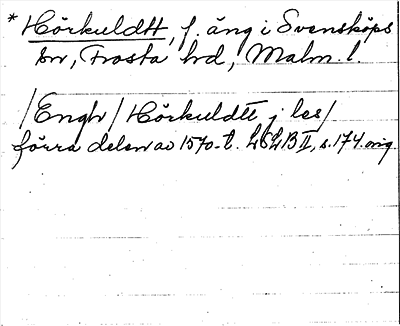 * Hörkuldtt, f. äng i Svensköps
sn, Frosta hd, Malm. l.
/Engh/ Hörkuldtt j les/
förra delen av 1570-t. LSLB II, s. 174 orig.